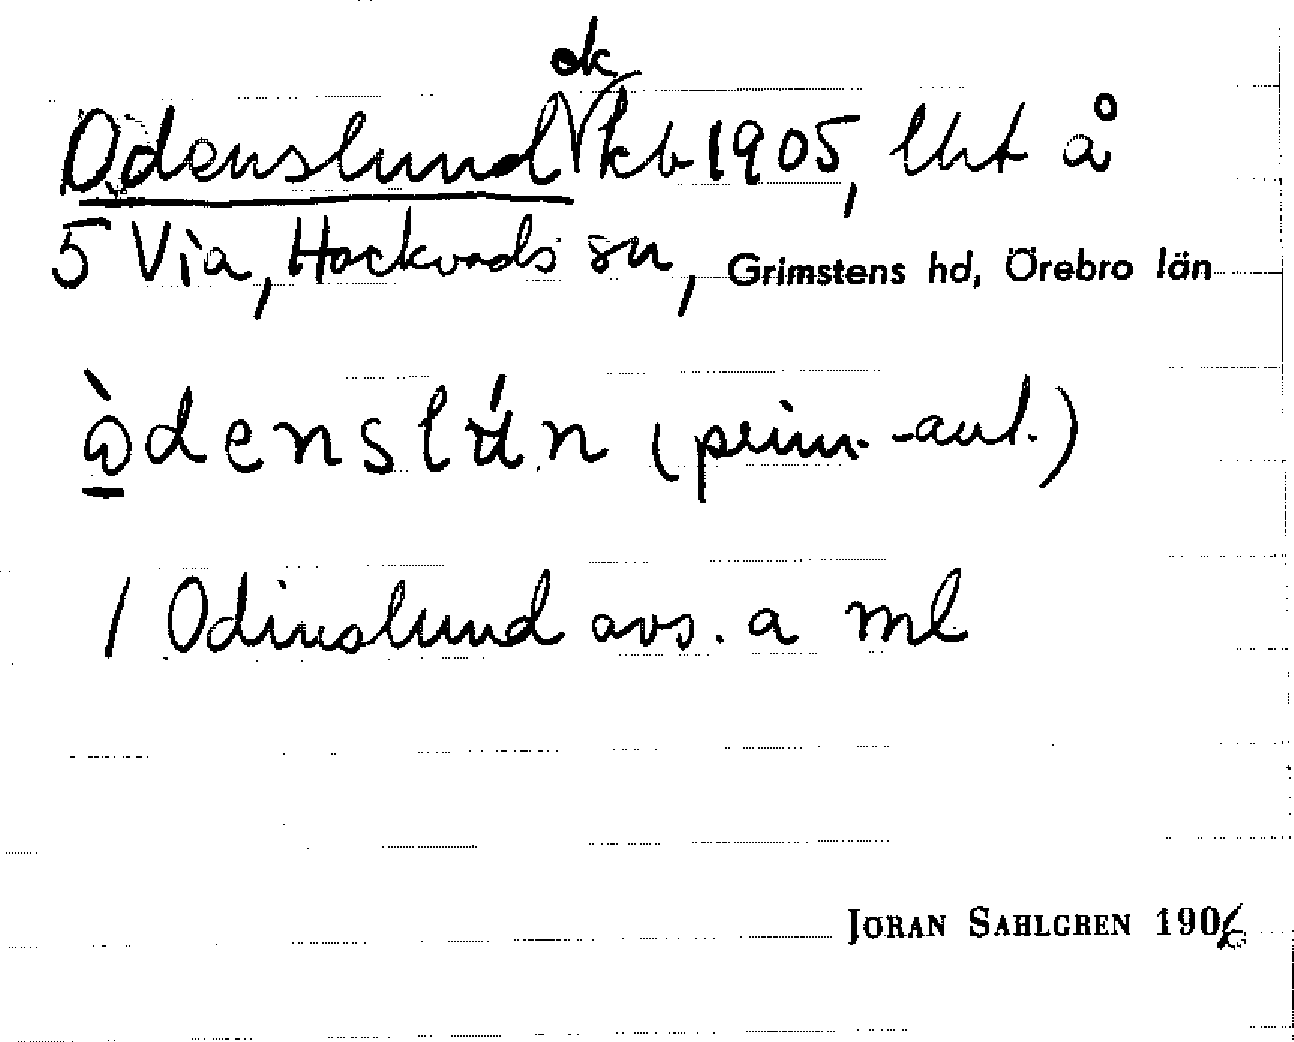 ok
Odenslund kb 1905, lht å
5 Via, Hackvads sn, Grimstens hd, Örebro län
ὼdenslún (prim.-aut.)
/ Odinslund avs. a ml
JÖRAN SAHLGREN 1906